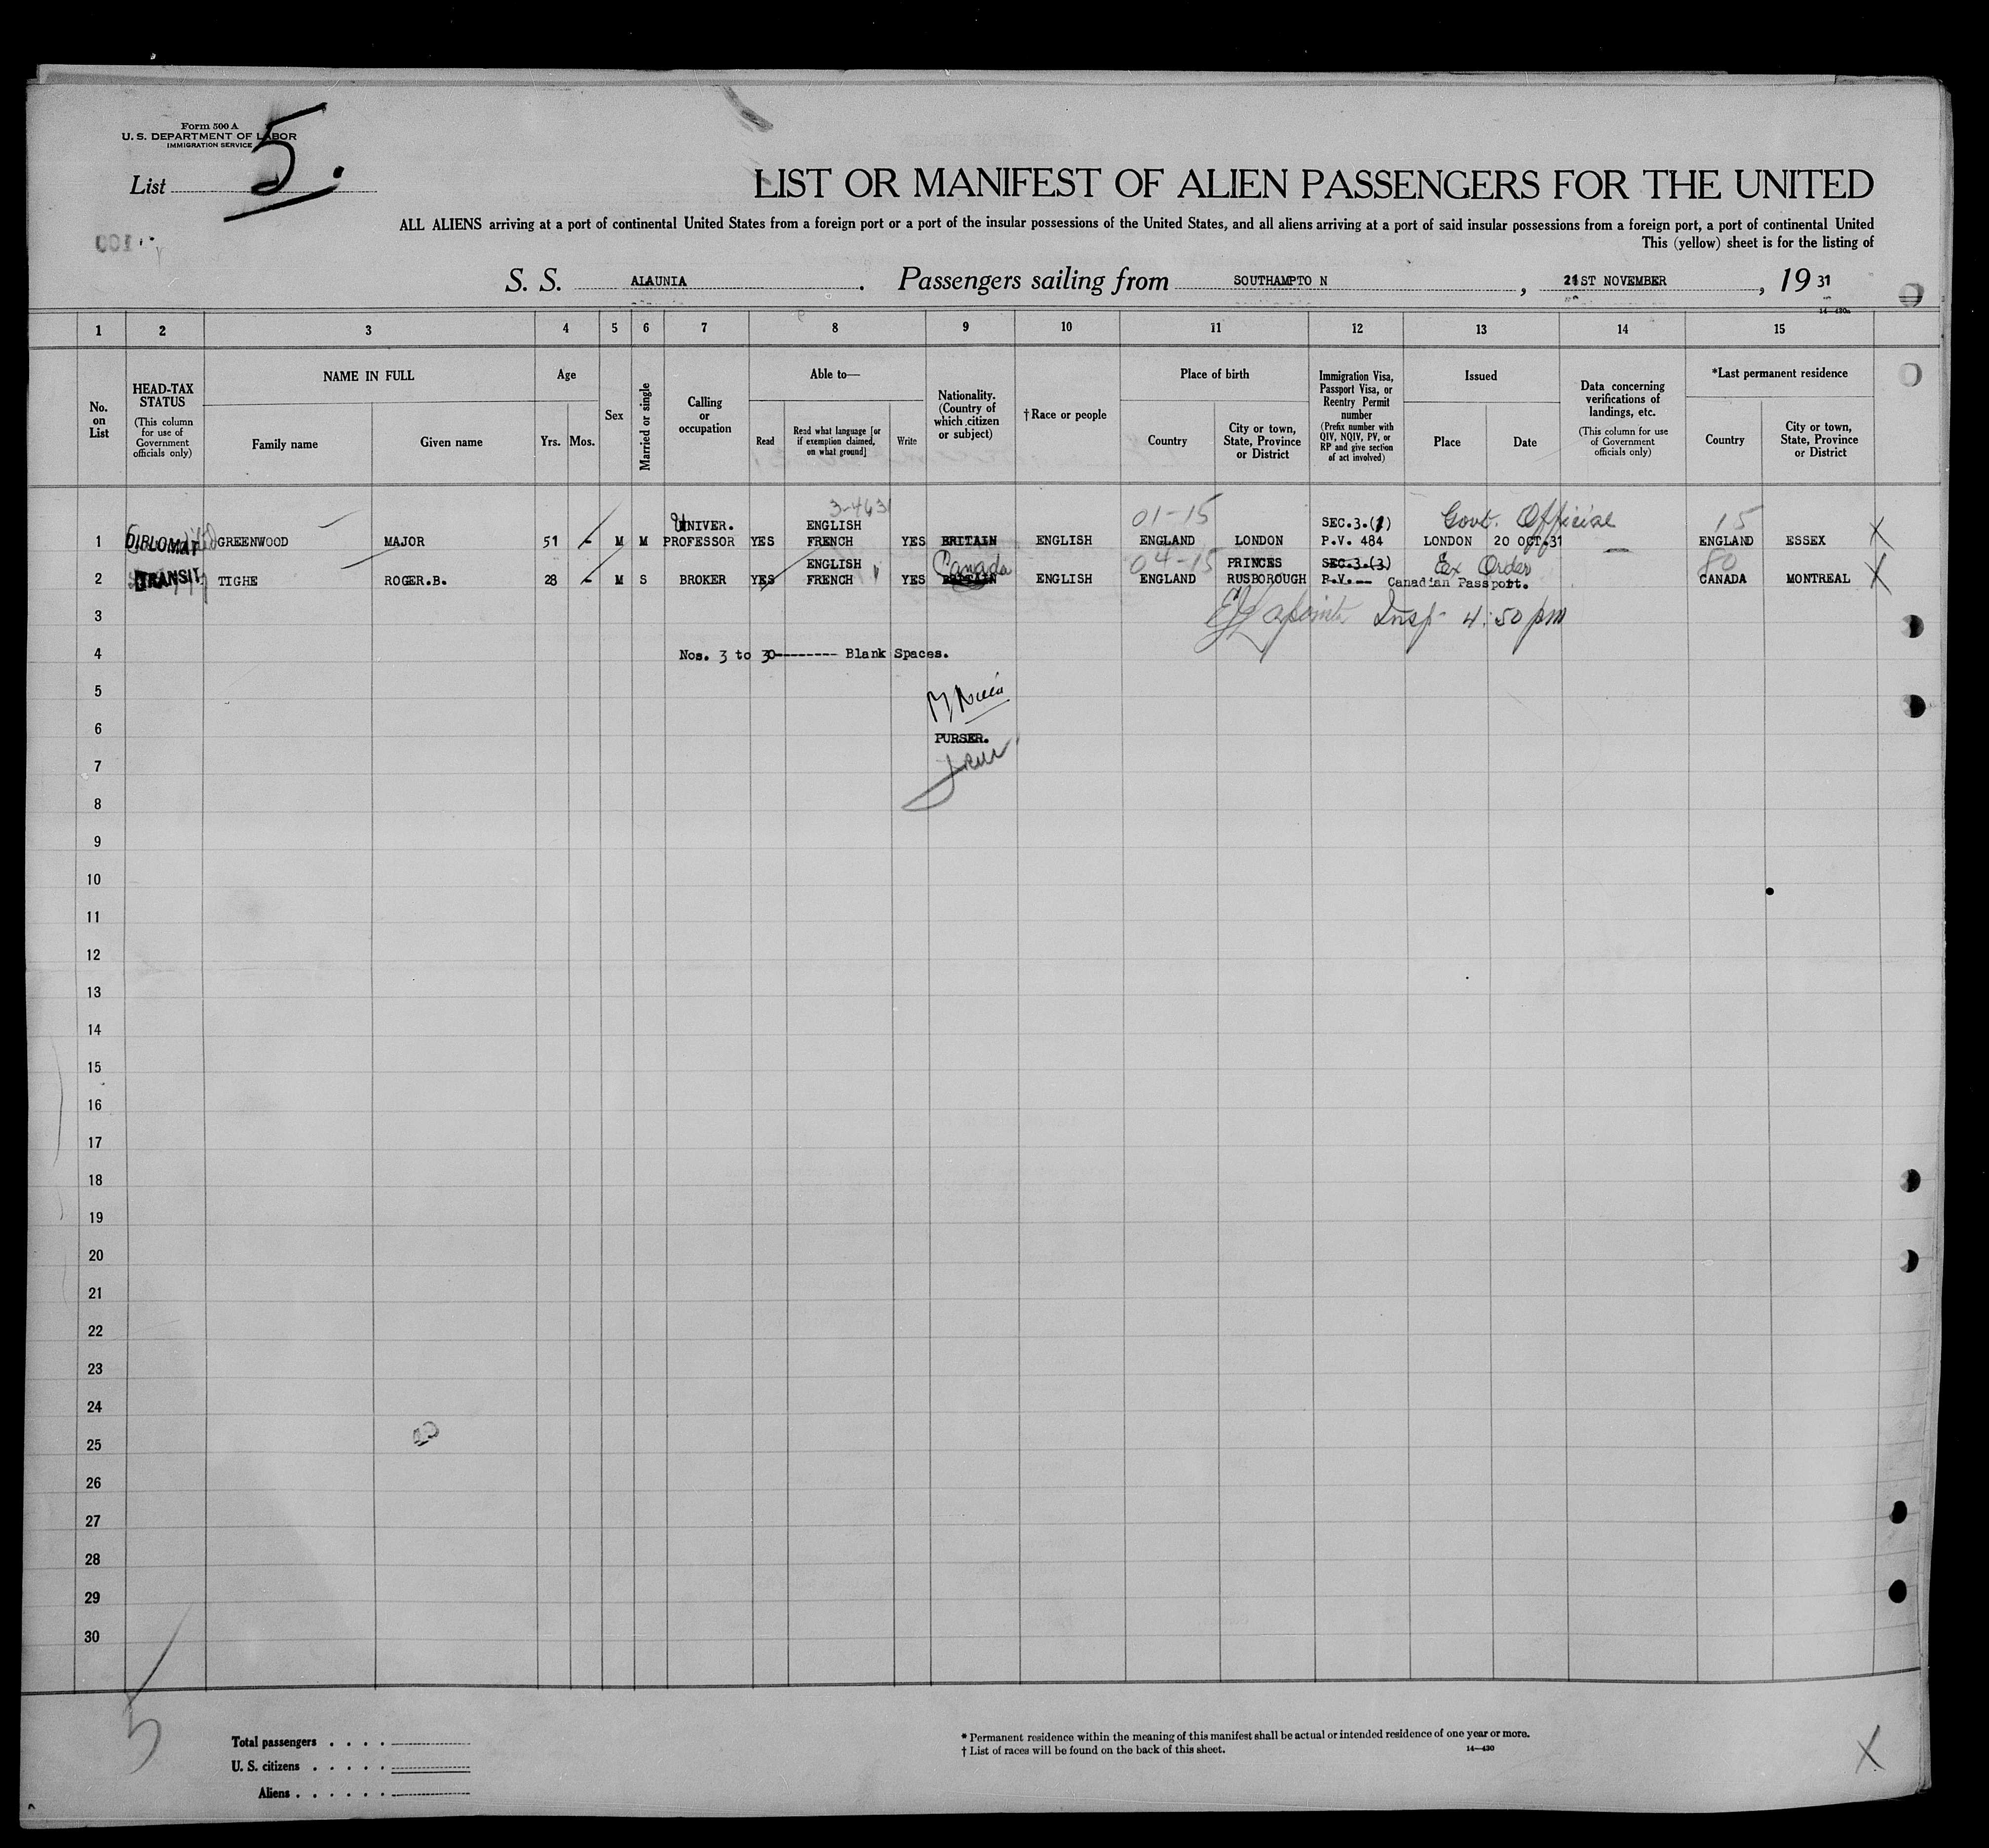 Form 500 A
U. S. DEPARTMENT OF LABOR
IMMIGRATION SERVICE
List 5.
LIST OR MANIFEST OF ALIEN PASSENGERS FOR THE UNITED
ALL ALIENS arriving at a port of continental United States from a foreign port or a port of the insular possessions of the United States, and all aliens arriving at a port of said insular possessions from a foreign port, a port of continental United
This (yellow) sheet is for the listing of
S. S. ALAUNIA . Passengers sailing from SOUTHAMPTO N , 21ST NOVEMBER , 19 31
14—430a
1 2 3 4 5 6 7 8 9 10 11 12 13 14 15
No. on List
HEAD-TAX STATUS
(This column for use of Government officials only)
NAME IN FULL
Family name
Given name
Age
Yrs. Mos.
Sex
Married or single
Calling or occupation
Able to—
Read
Read what language [or if exemption claimed, on what ground]
Write
Nationality. (Country of which citizen or subject)
†Race or people
Place of birth
Country
City or town, State, Province or District
Immigration Visa, Passport Visa, or Reentry Permit number
(Prefix number with QIV, NQIV, PV, or RP and give section of act involved)
Issued
Place
Date
Data concerning verifications of landings, etc.
(This column for use of Government officials only)
*Last permanent residence
Country
City or town, State, Province or District
3-4631 01-15 Govt. Official 15
UNIVER. ENGLISH SEC.3.(1)
1 DIPLOMAT GREENWOOD MAJOR 51 - M M PROFESSOR YES FRENCH YES BRITAIN ENGLISH ENGLAND LONDON P.V. 484 LONDON 20 OCT.31 — ENGLAND ESSEX X
ENGLISH Canada 04-15 PRINCES SEC.3.(3) Ex Order 80
2 TRANSIT TIGHE ROGER.B. 28 - M S BROKER YES FRENCH YES BRITAIN ENGLISH ENGLAND RUSBOROUGH P.V.-- Canadian Passport. CANADA MONTREAL X
3 Insp 4:50 pm
4 Nos. 3 to 30-------- Blank Spaces.
5
6 PURSER.
7
8
9
10
11
12
13
14
15
16
17
18
19
20
21
22
23
24
25
26
27
28
29
30
5
Total passengers . . . .
U. S. citizens . . . . .
Aliens . . . . . .
* Permanent residence within the meaning of this manifest shall be actual or intended residence of one year or more.
† List of races will be found on the back of this sheet.
14—430
X